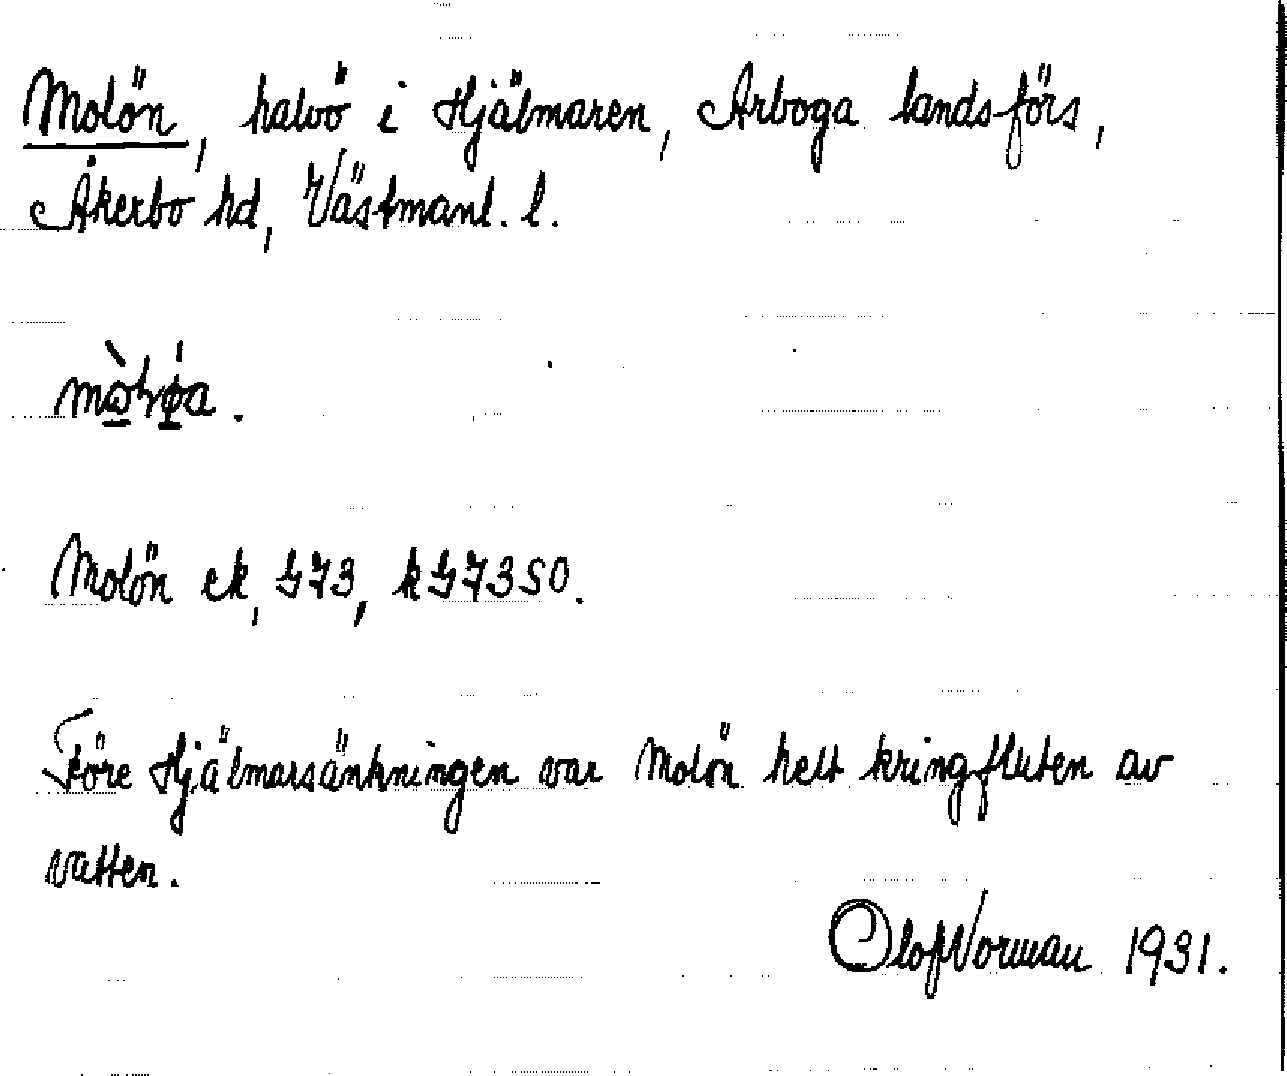 Molön, halvö i Hjälmaren, Arboga landsförs,
Åkerbo hd, Västmanl. l.
Molön ek, G73, kG73SO.
Före Hjälmarsänkningen var Molön helt kringfluten av
vatten.
Olof Norman 1931.